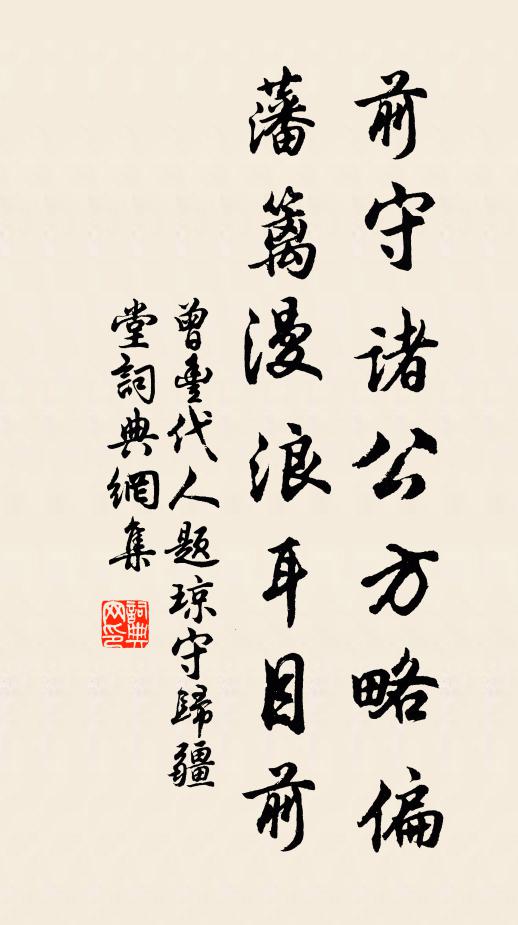 前守諸公方略偏
藩篱漫浪耳目前
曾豊代人题琼守歸疆
堂詞典網集
詞典网印